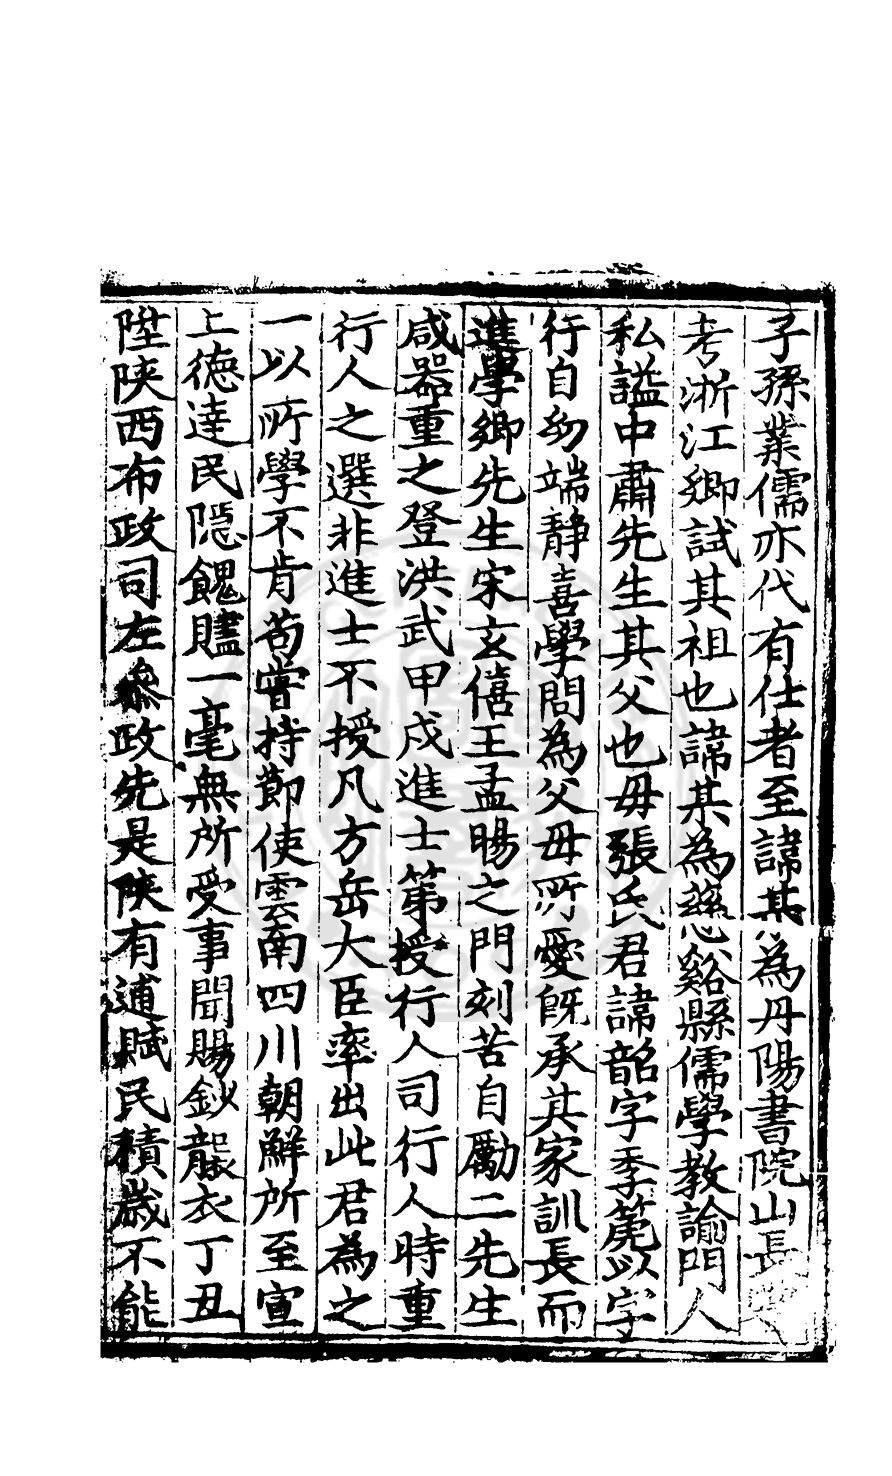 子孫業儒亦代有仕者至諱某為丹陽書院山長
考浙江鄉試其祖也諱某為慈谿縣儒學教諭門人
私謚中肅先生其父也毋張氏君諱韶字季箎以字
行自幼端靜喜學問為父母所愛既承其家訓長而
進學鄉先生宋玄僖王孟暘之門刻苦自勵二先生
咸器重之登洪武甲戌進士第授行人司行人時重
行人之選非進士不授凡方岳大臣率出此君為之
一以所學不肯苟嘗持節使雲南四川朝鮮所至宣
上德達民隱餽贐一毫無所受事聞賜鈔襲衣丁丑
陞陝西布政司左參政先是陝有逋賦民積歲不能